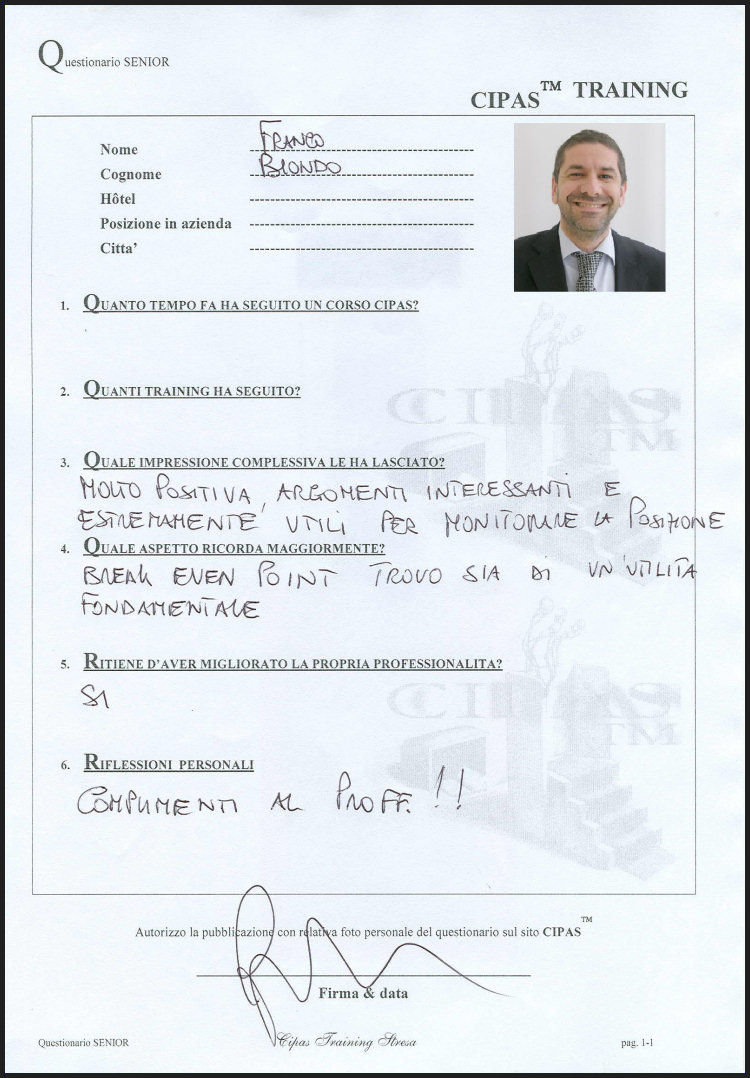 Questionario SENIOR
CIPAS™ TRAINING
Nome FRANCO
Cognome BIONDO
Hôtel
Posizione in azienda
Citta'
1. QUANTO TEMPO FA HA SEGUITO UN CORSO CIPAS?
2. QUANTI TRAINING HA SEGUITO?
CIPAS
TM
3. QUALE IMPRESSIONE COMPLESSIVA LE HA LASCIATO?
MOLTO POSITIVA, ARGOMENTI INTERESSANTI E
ESTREMAMENTE UTILI PER MONITORARE LA POSIZIONE
4. QUALE ASPETTO RICORDA MAGGIORMENTE?
BREAK EVEN POINT TROVO SIA DI UN'UTILITA
FONDAMENTALE
5. RITIENE D'AVER MIGLIORATO LA PROPRIA PROFESSIONALITA?
SI
CIPAS
TM
6. RIFLESSIONI PERSONALI
COMPLIMENTI AL PROFF.!!
Autorizzo la pubblicazione con relativa foto personale del questionario sul sito CIPAS™
Firma & data
Questionario SENIOR Cipas Training Stresa pag. 1-1